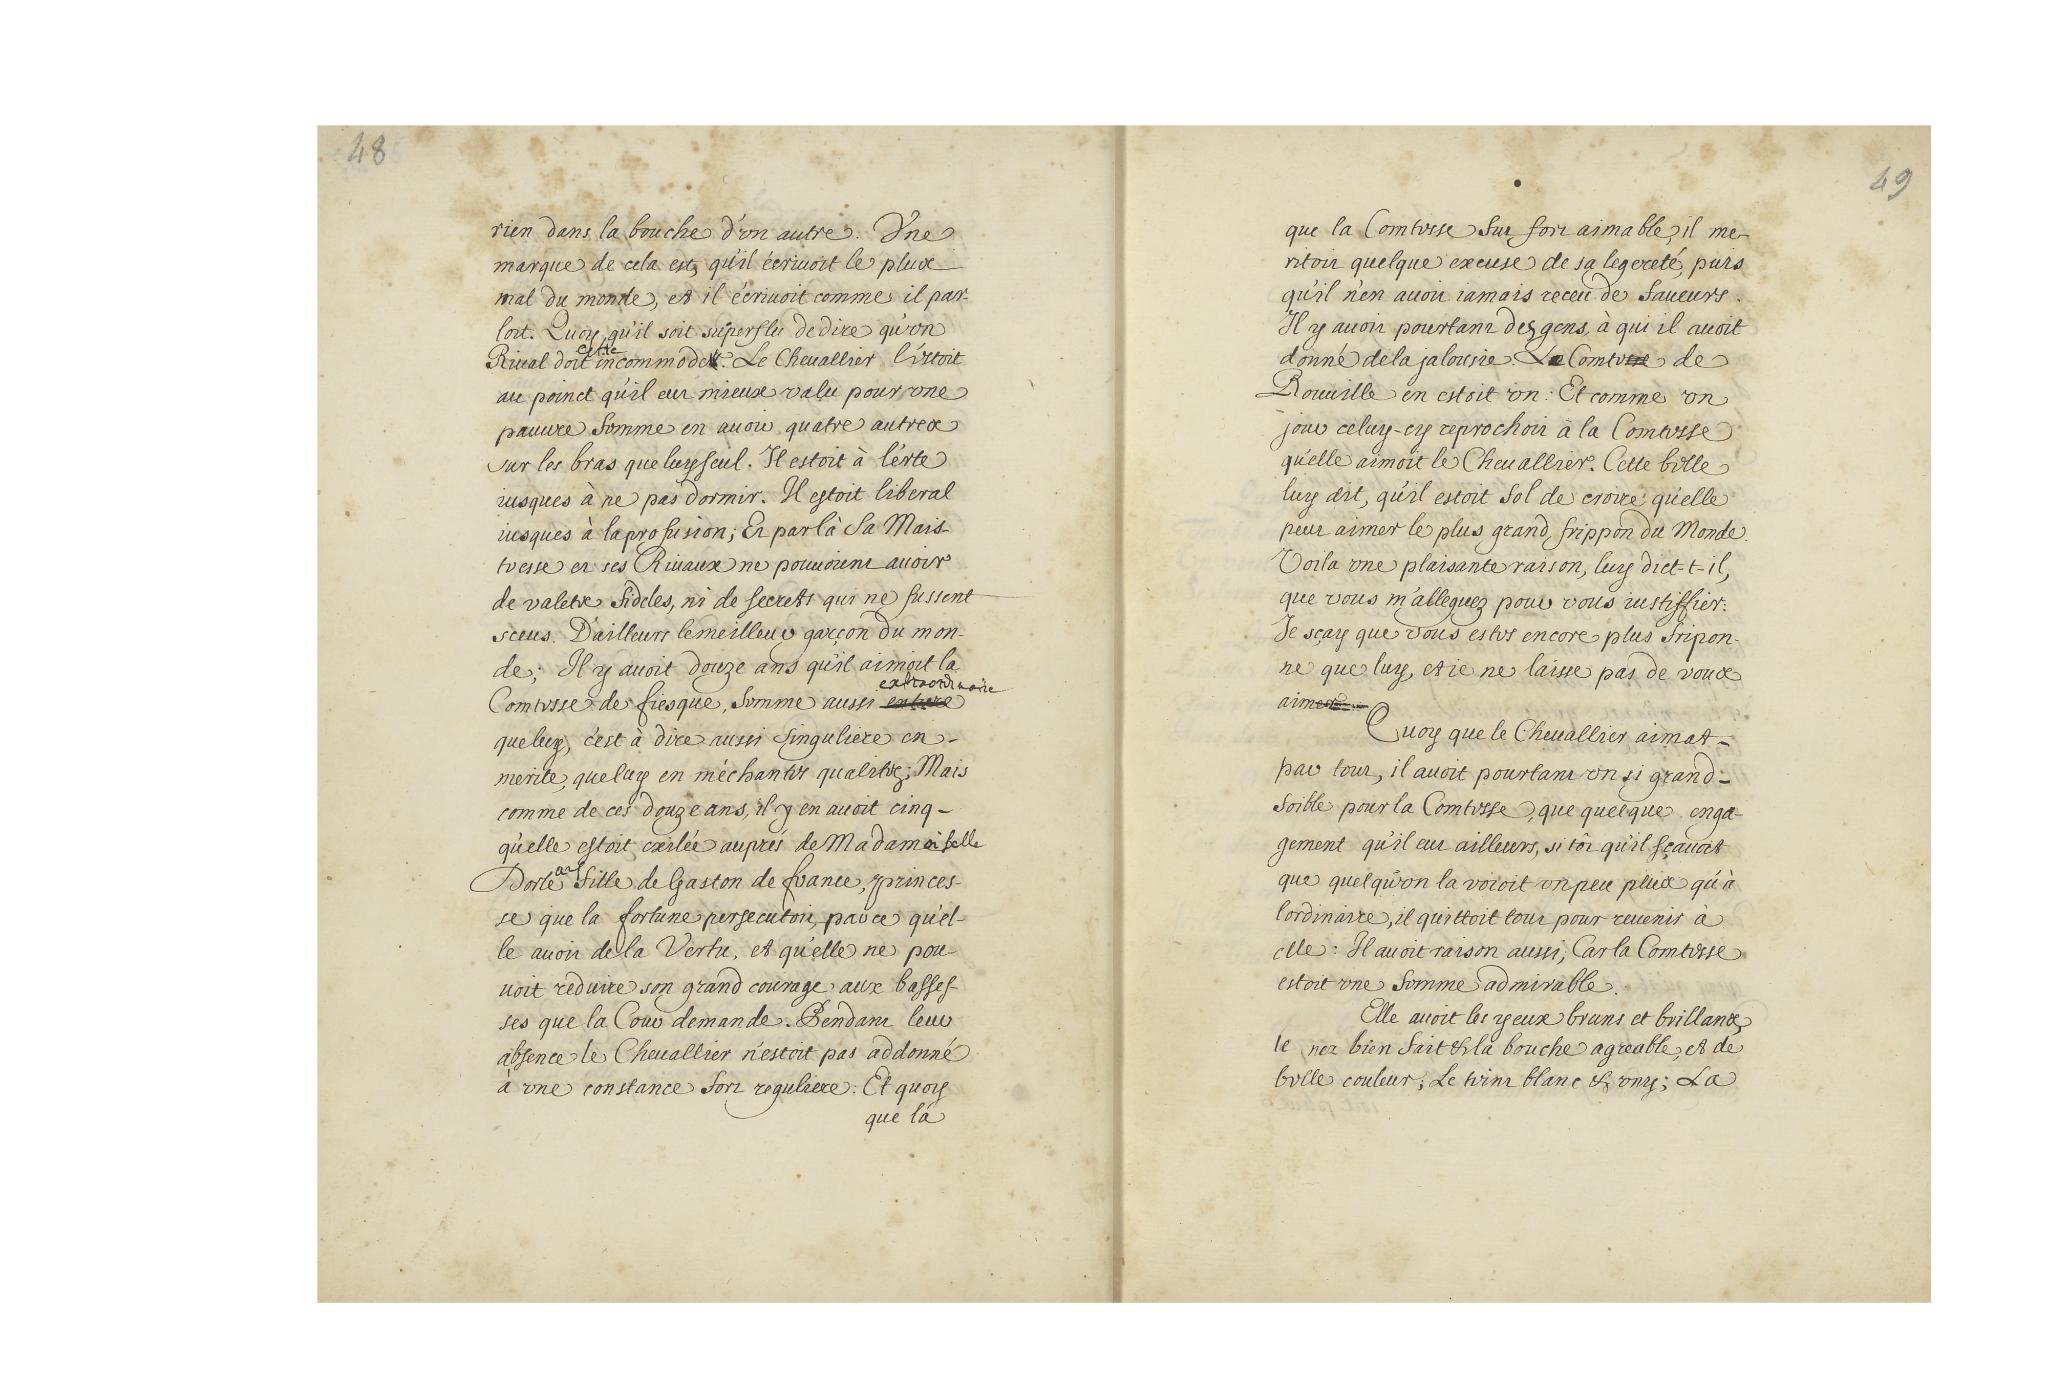 48
rien dans la bouche d'vn autre. Vne
marque de cela est, qu'il écriuoit le plus
mal du monde, et il écriuoit comme il par-
loit. Quoy qu'il soit superflu de dire qu'vn
Riual doit estre incommode. Le Cheuallier l'estoit
au poinct qu'il eut mieux valu pour vne
pauure femme en auoir quatre autres
sur les bras que luy seul. Il estoit à l'érte
iusques à ne pas dormir. Il estoit liberal
iusques à la profusion; Et par là Sa Mais-
tresse et ses Riuaux ne pouuoient auoir
de valets fideles, ni de secrets qui ne fussent
sceus. D'ailleurs le meilleur garçon du mon-
de; Il y auoit douze ans qu'il aimoit la
Comtesse de fiesque, femme aussi extraordinaire
que luy, c'est à dire aussi singuliere en-
merite, que luy en méchantes qualitez; Mais
comme de ces douze ans, il y en auoit cinq-
qu'elle estoit exilée auprés de Madamoiselle
Dorleans fille de Gaston de france, princes-
se que la fortune persecutoit, parce qu'el-
le auoit de la Vertu, et qu'elle ne pou-
uoit reduire son grand courage aux basses-
ses que la Cour demande. Pendant leur
absence le Cheuallier n'estoit pas addonné
à vne constance fort reguliere: Et quoy
que la
49
que la Comtesse fut fort aimable, il me-
ritoit quelque excuse de sa legereté, puis
qu'il n'en auoit iamais receu de faueurs.
Il y auoit pourtant des gens, à qui il auoit
donné de la jalousie. Le Comte de
Rouuille en estoit vn: Et comme vn
jour celuy-cy reprochoit à la Comtesse
qu'elle aimoit le Cheuallier. Cette belle
luy dit, qu'il estoit fol de croire qu'elle
peut aimer le plus grand frippon du Monde.
Voila vne plaisante raison, luy dict-t-il,
que vous m'alleguez pour vous iustiffier.
Je sçay que vous estes encore plus fripon-
ne que luy, et ie ne laisse pas de vous
aimer
Quoy que le Cheuallier aimat-
par tout, il auoit pourtant vn si grand-
foible pour la Comtesse, que quelque enga-
gement qu'il eut ailleurs, si tôt qu'il sçauoit
que quelqu'vn la voioit vn peu plus qu'à
l'ordinaire, il quittoit tout pour reuenir à
elle: Il auoit raison aussi, Car la Comtesse
estoit vne femme admirable.
Elle auoit les yeux bruns et brillants,
le nez bien fait & la bouche agreable, et de
belle couleur; Le teint blanc & vny; La